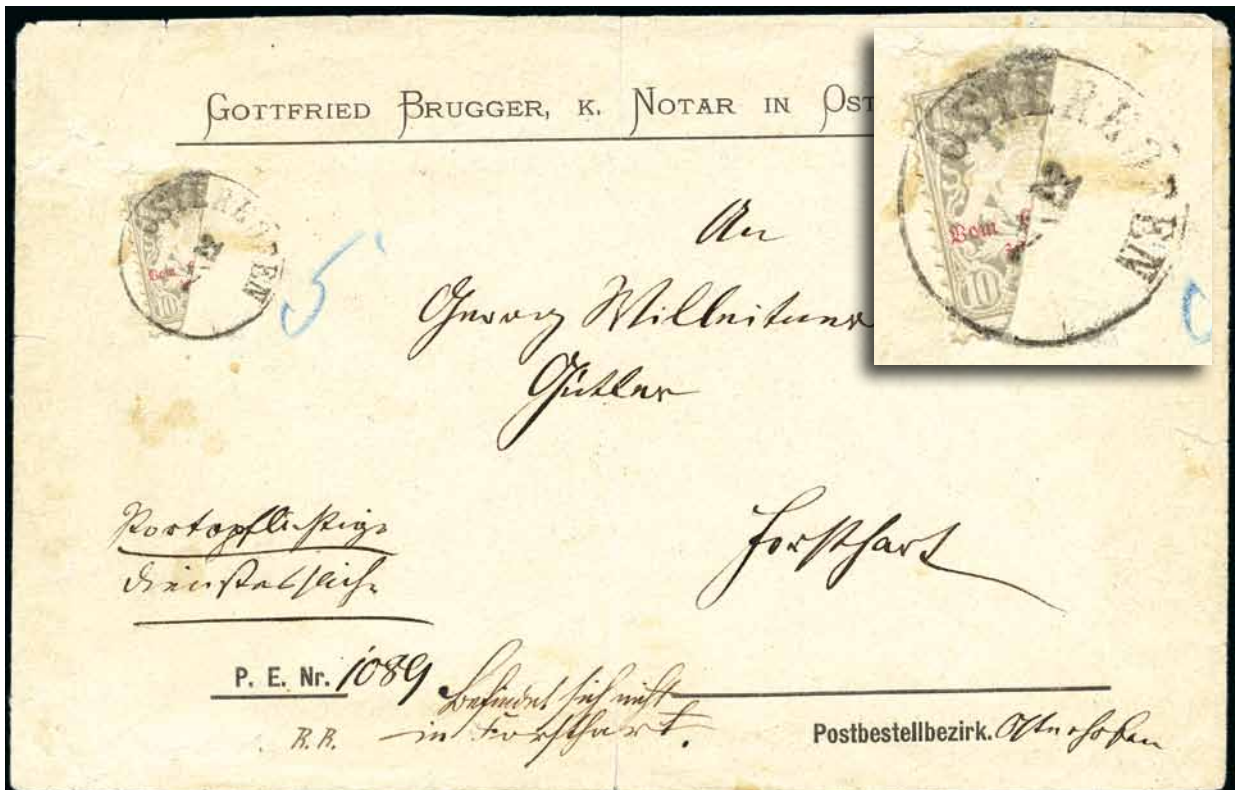 GOTTFRIED BRUGGER, K. NOTAR IN OST
OSTERHOFEN
Vom
10
5
An
Georg Willeitner
Gütler
Forsthart
Portopflichtige
Dienstessache
P. E. Nr. 1089
Befindet sich nicht
in Forsthart.
R. R.
Postbestellbezirk. Osterhofen
OSTERHOFEN
12
Vom
10